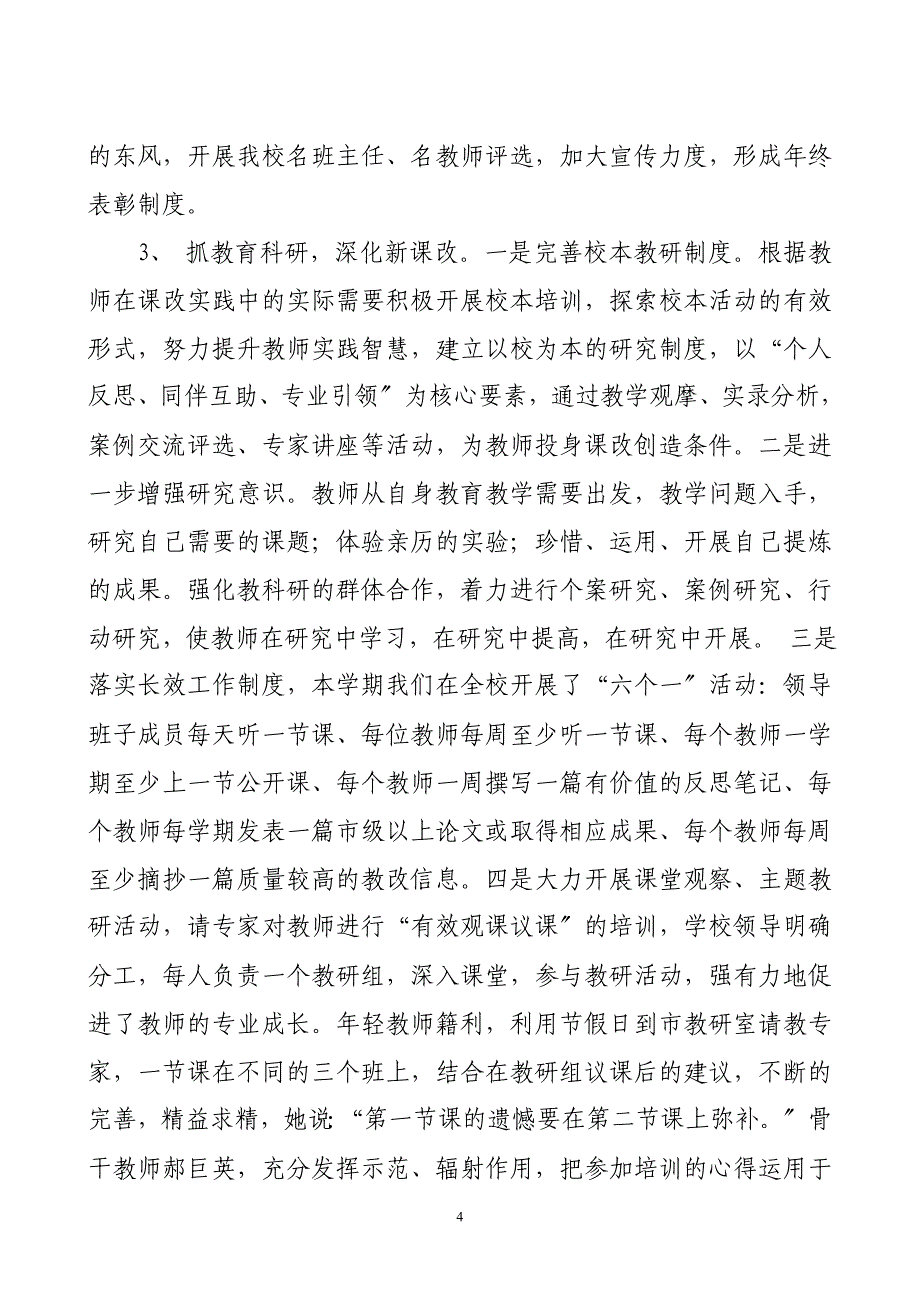 的东风，开展我校名班主任、名教师评选，加大宣传力度，形成年终
表彰制度。
3、 抓教育科研，深化新课改。一是完善校本教研制度。根据教
师在课改实践中的实际需要积极开展校本培训，探索校本活动的有效
形式，努力提升教师实践智慧，建立以校为本的研究制度，以“个人
反思、同伴互助、专业引领〞为核心要素，通过教学观摩、实录分析，
案例交流评选、专家讲座等活动，为教师投身课改创造条件。二是进
一步增强研究意识。教师从自身教育教学需要出发，教学问题入手，
研究自己需要的课题；体验亲历的实验；珍惜、运用、开展自己提炼
的成果。强化教科研的群体合作，着力进行个案研究、案例研究、行
动研究，使教师在研究中学习，在研究中提高，在研究中开展。 三是
落实长效工作制度，本学期我们在全校开展了“六个一〞活动：领导
班子成员每天听一节课、每位教师每周至少听一节课、每个教师一学
期至少上一节公开课、每个教师一周撰写一篇有价值的反思笔记、每
个教师每学期发表一篇市级以上论文或取得相应成果、每个教师每周
至少摘抄一篇质量较高的教改信息。四是大力开展课堂观察、主题教
研活动，请专家对教师进行“有效观课议课〞的培训，学校领导明确
分工，每人负责一个教研组，深入课堂，参与教研活动，强有力地促
进了教师的专业成长。年轻教师籍利，利用节假日到市教研室请教专
家，一节课在不同的三个班上，结合在教研组议课后的建议，不断的
完善，精益求精，她说：“第一节课的遗憾要在第二节课上弥补。〞骨
干教师郝巨英，充分发挥示范、辐射作用，把参加培训的心得运用于
4